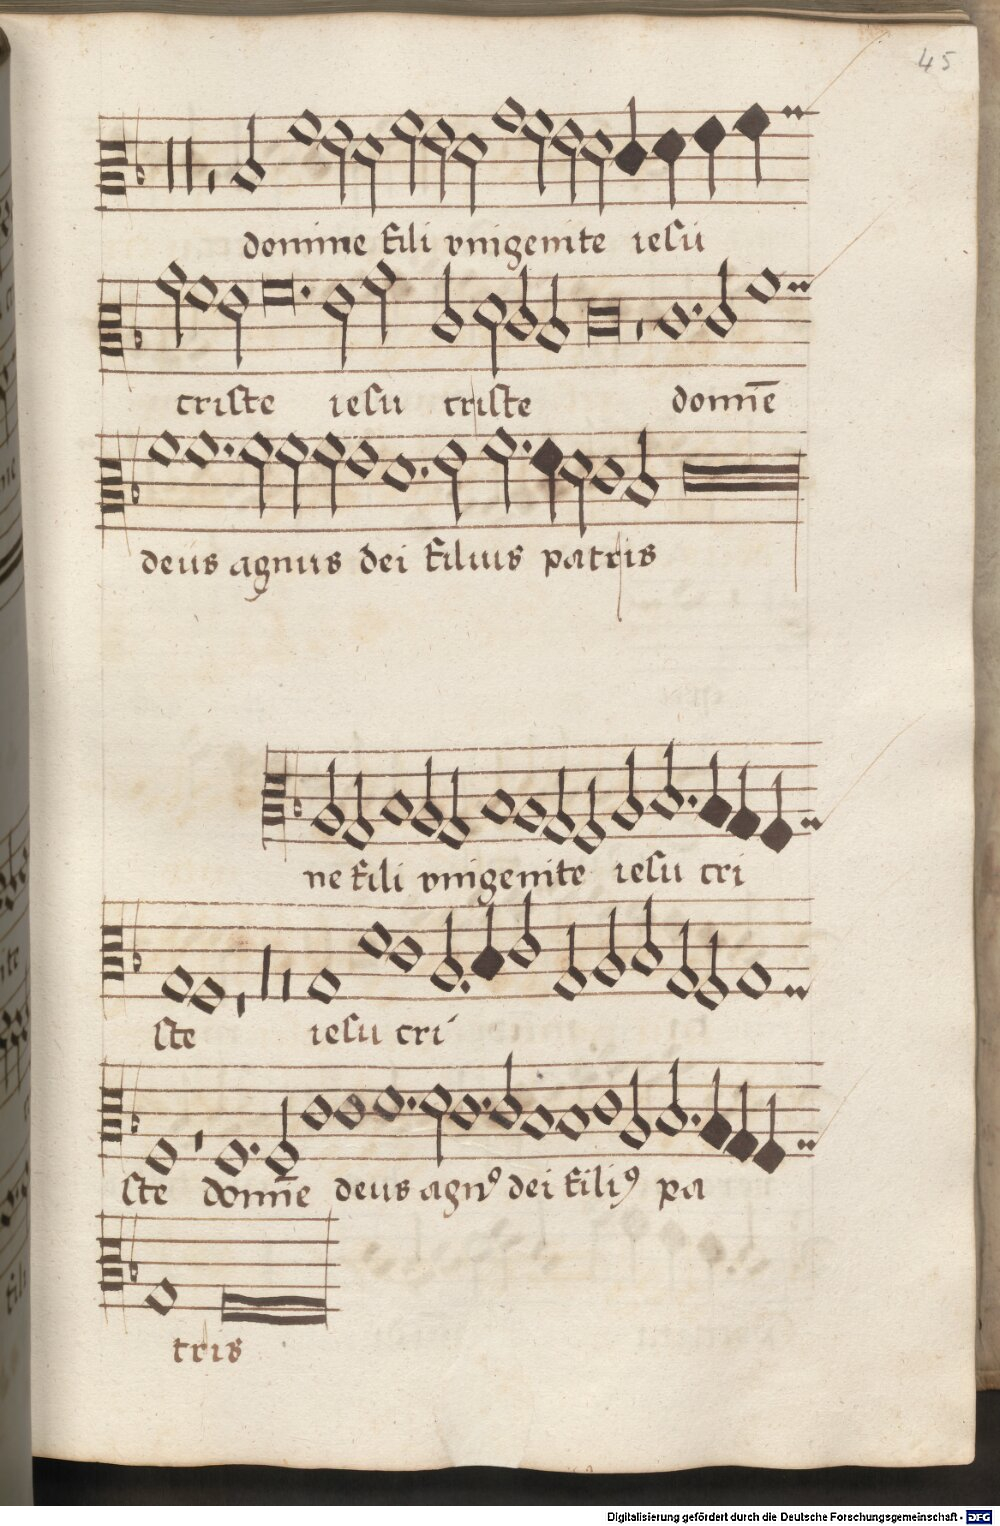 45
domine fili vnigenite iesu
criste iesu criste domiē
deus agnus dei filius patris
ne fili vnigenite iesu cri
ste iesu cri
ste domīe deus agnꝰ dei filiꝰ pa
tris
Digitalisierung gefördert durch die Deutsche Forschungsgemeinschaft - DFG